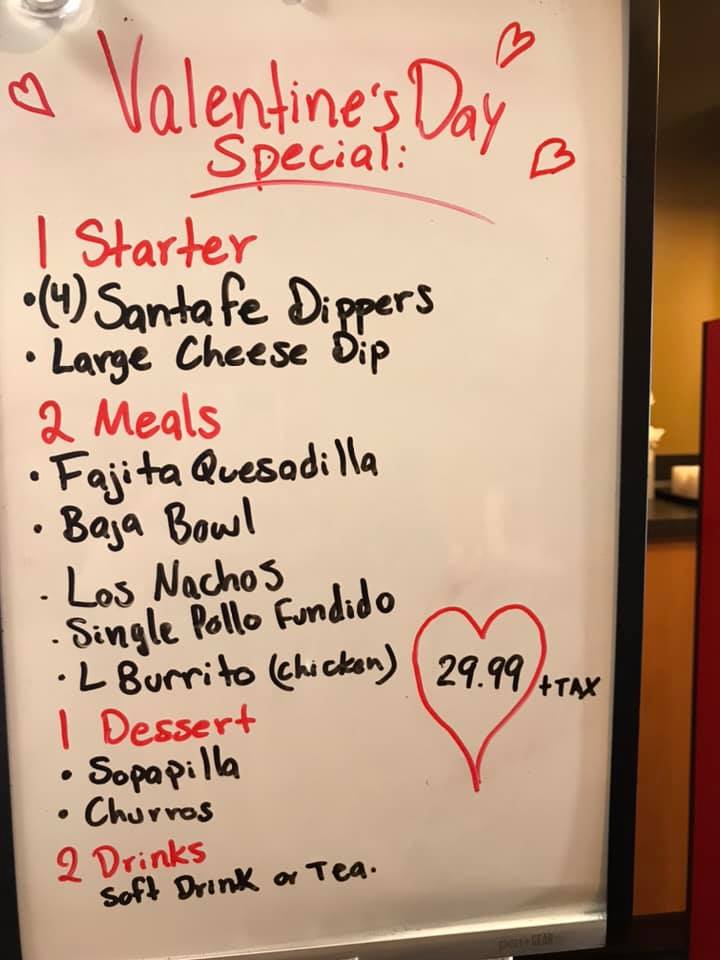 Valentine's Day
Special:
1 Starter
•(4) Santa fe Dippers
• Large Cheese Dip
2 Meals
• Fajita Quesadilla
• Baja Bowl
• Los Nachos
• Single Pollo Fundido
• L Burrito (chicken)
29.99 + TAX
1 Dessert
• Sopapilla
• Churros
2 Drinks
Soft Drink or Tea.
pen+GEAR